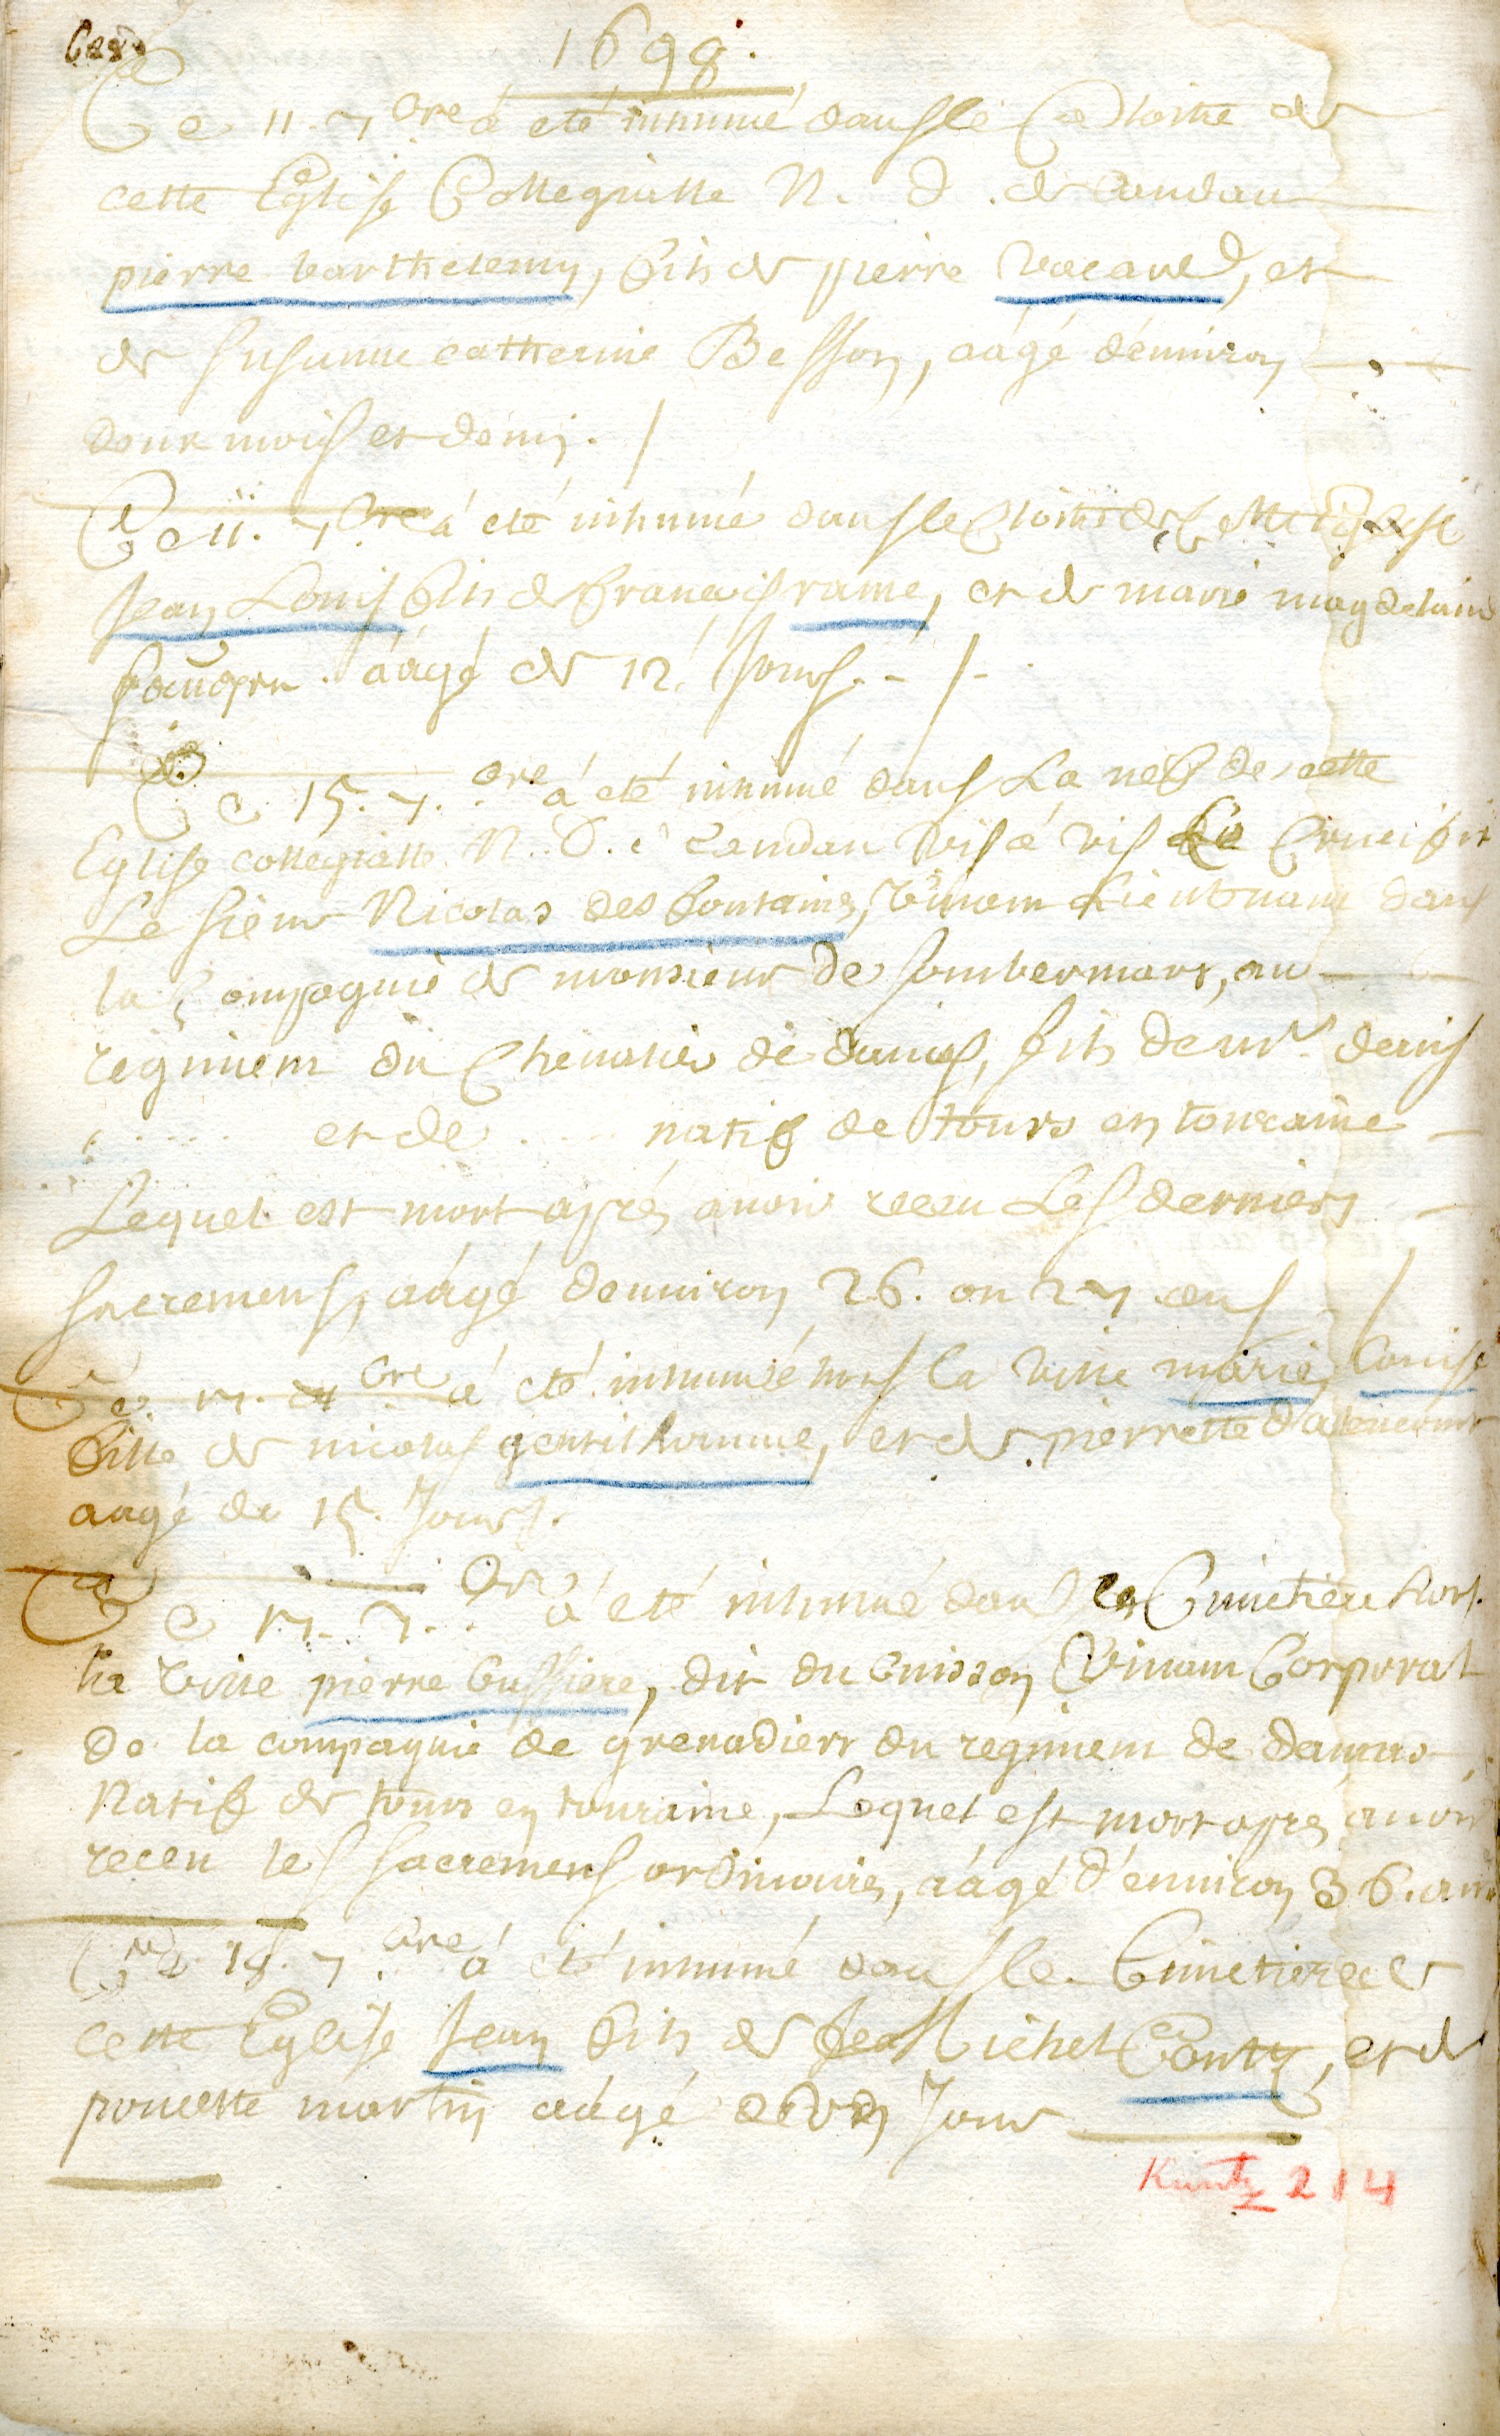 628
1698.
Ce 11. 7bre a eté inhumé dans le Cloitre de
cette Eglise Collegialle N. D. de Landau
pierre barthelemy, fils de pierre vacaud, et
de susanne catherine Besson, aágé d'énuiron
deux mois et demy. /
Ce 11. 7bre á eté inhumé dans le Cloitre de Cette Eglise
Jean Louis fils de francois rame, et de marie magdelaine
aágé de 12. Jours. - / -
Ce 15. 7.bre á eté inhumé dans La nef de cette
Eglise collegialle N. D. é Landau vis á vis Le Crucifix
Le sieur Nicolas des fontaines, viuam Lieutenant dans
la Compagnie de monsieur de sombermans, au
regiment du Cheualier de damas, fils de mr. denis
..... et de .... natif de tours en touraine
Lequel est mort aprés auoir receu Les derniers
sacremens, aágé denuiron 26. ou 27 ans /
Ce. 17. 7bre á eté inhumée hors la ville marie Louise
fille de nicolas gentilhomme, et de pierrette
aagé de 15. Jours.
Ce 17. 7.bre á eté inhumé dans le Cimetiere hors
la ville pierre bussiere, dit du buisson viuam Corporal
de la compagnie de grenadiers du regiment de damas
Natif de tours en touraine, Lequel est mort apres auoir
receu les sacremens ordinaires, aágé d'énuiron 36. ans
Ce 18. 7.bre á eté inhumé dans le Cimetiere de
cette Eglise Jean fils de Jea Michel Contz, et de
poncette martin aágé de vn Jour
Kuntz 214